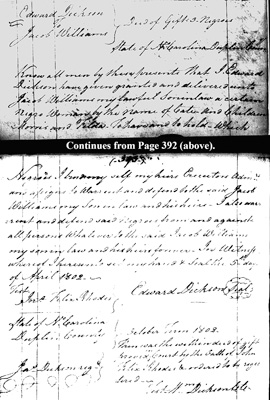 Edward Dickson
to
Jacob Williams
Deed of Gift 3 Negroes
State of No Carolina Duplin County
Know all men by these presents that I Edward
Dickson have given granted and delivered unto
Jacob Williams my lawful Son in law a certain
Negro Woman by the Name of Cate and Children
and to hold which
Continues from Page 392 (above).
Negroes I bind my self my heirs Executors Adm
assigns to Warrent and defend to the said Jacob
Williams my Son in law and his heirs. I also war
rent and defend said Negroes from and against
all persons Whatever to the said Jacob Williams
my son in law and his heirs forever. For Witness
whereof I hereunto set my hand & Seal the 5th day
of April 1802.
Test
Felix Rhodes
Edward Dickson Seal
State of No Carolina
Duplin County
October Term 1803.
Then was the within deed of gift
proved in Court by the Oath of John
Felix Rhodes & ordered to be regis
tered
Jas Dickson reg
Test Wm Dickson Clk